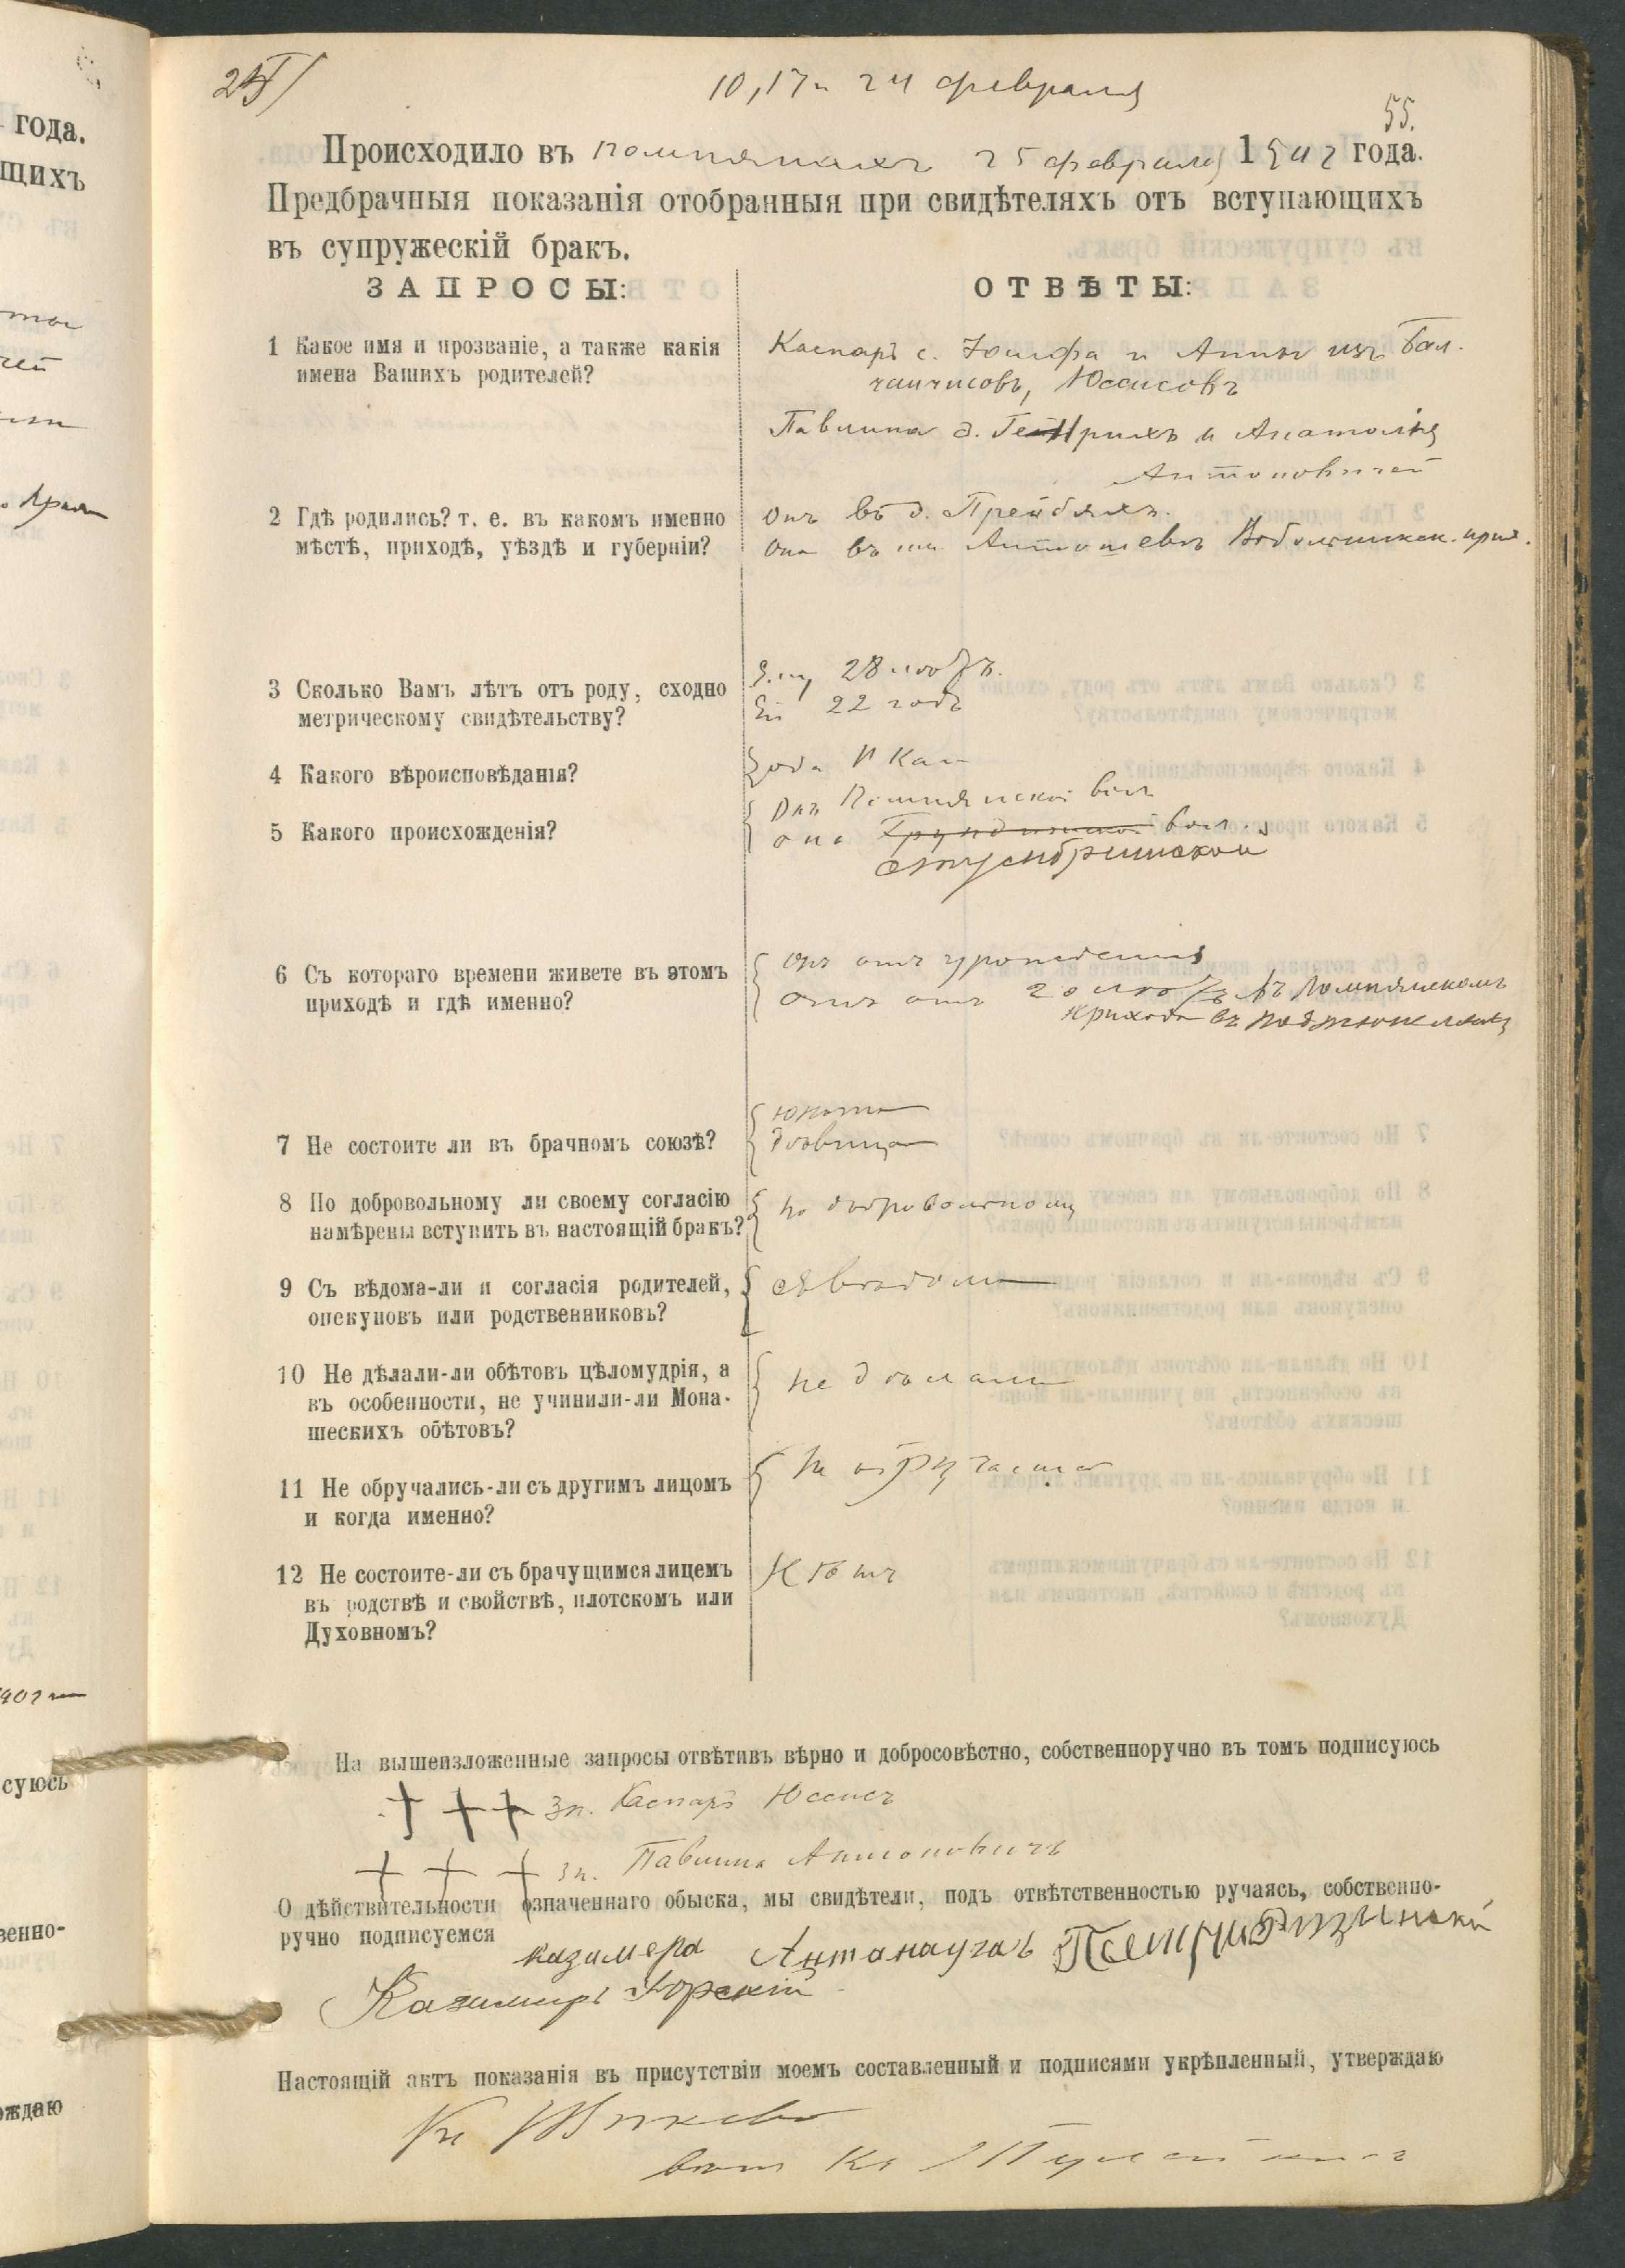 10, 17 и 24 февраля
55.
Происходило въ помпянахъ 25 февраля 1902 года.
Предбрачныя показанія отобранныя при свидѣтеляхъ отъ вступающихъ
въ супружескій бракъ.
ЗАПРОСЫ:
ОТВѢТЫ:
1 Какое имя и прозваніе, а также какія
имена Вашихъ родителей?
Каспаръ с. Іосифа и Анны изъ Бал-
чаичисовъ, Юссисовъ
Павлина д. Генрихъ и Анатолія
Антоновичей
2 Гдѣ родились? т. е. въ какомъ именно
мѣстѣ, приходѣ, уѣздѣ и губерніи?
Онъ въ д. Прейбляхъ.
Она въ им. Антошевѣ Вобольникск. прих.
3 Сколько Вамъ лѣтъ отъ роду, сходно
метрическому свидѣтельству?
Ему 28 лѣтъ.
Ей 22 года
4 Какого вѣроисповѣданія?
оба Р Кат
5 Какого происхожденія?
Онъ Помпянской вол
она вол.
6 Съ котораго времени живете въ этомъ
приходѣ и гдѣ именно?
Онъ отъ урожденія
Она отъ 20 лѣтъ въ Помпянскомъ
приходѣ въ
7 Не состоите ли въ брачномъ союзѣ?
юноша
дѣвица
8 По добровольному ли своему согласію
намѣрены вступить въ настоящій бракъ?
по добровольному
9 Съ вѣдома-ли и согласія родителей,
опекуновъ или родственниковъ?
съ вѣдома
10 Не дѣлали-ли обѣтовъ цѣломудрія, а
въ особенности, не учинили-ли Мона-
шескихъ обѣтовъ?
не дѣлали
11 Не обручались-ли съ другимъ лицомъ
и когда именно?
не обручались
12 Не состоите-ли съ брачущимся лицемъ
въ родствѣ и свойствѣ, плотскомъ или
Духовномъ?
Нѣтъ
На вышеизложенные запросы отвѣтивъ вѣрно и добросовѣстно, собственноручно въ томъ подписуюсь
+ + + зн. Каспаръ Юссисъ
+ + + зн. Павлина Антоновичъ
О дѣйствительности означеннаго обыска, мы свидѣтели, подъ отвѣтственностью ручаясь, собственно-
ручно подписуемся
казимера Антанауга
Казимиръ Юрскій
Настоящій актъ показанія въ присутствіи моемъ составленный и подписями укрѣпленный, утверждаю